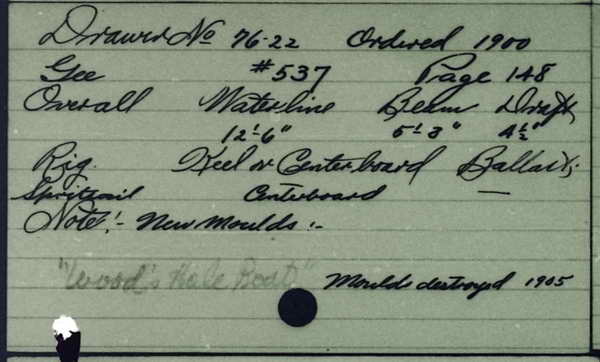 Drawer No 76-22 Ordered 1900
Gee #537 Page 148
Overall Waterline Beam Draft
12'-6" 5'-3" 4½"
Rig. Keel or Centerboard Ballast;
Spritsail Centerboard —
Note:- New Moulds :-
"Wood's Hole Boat" Moulds destroyed 1905